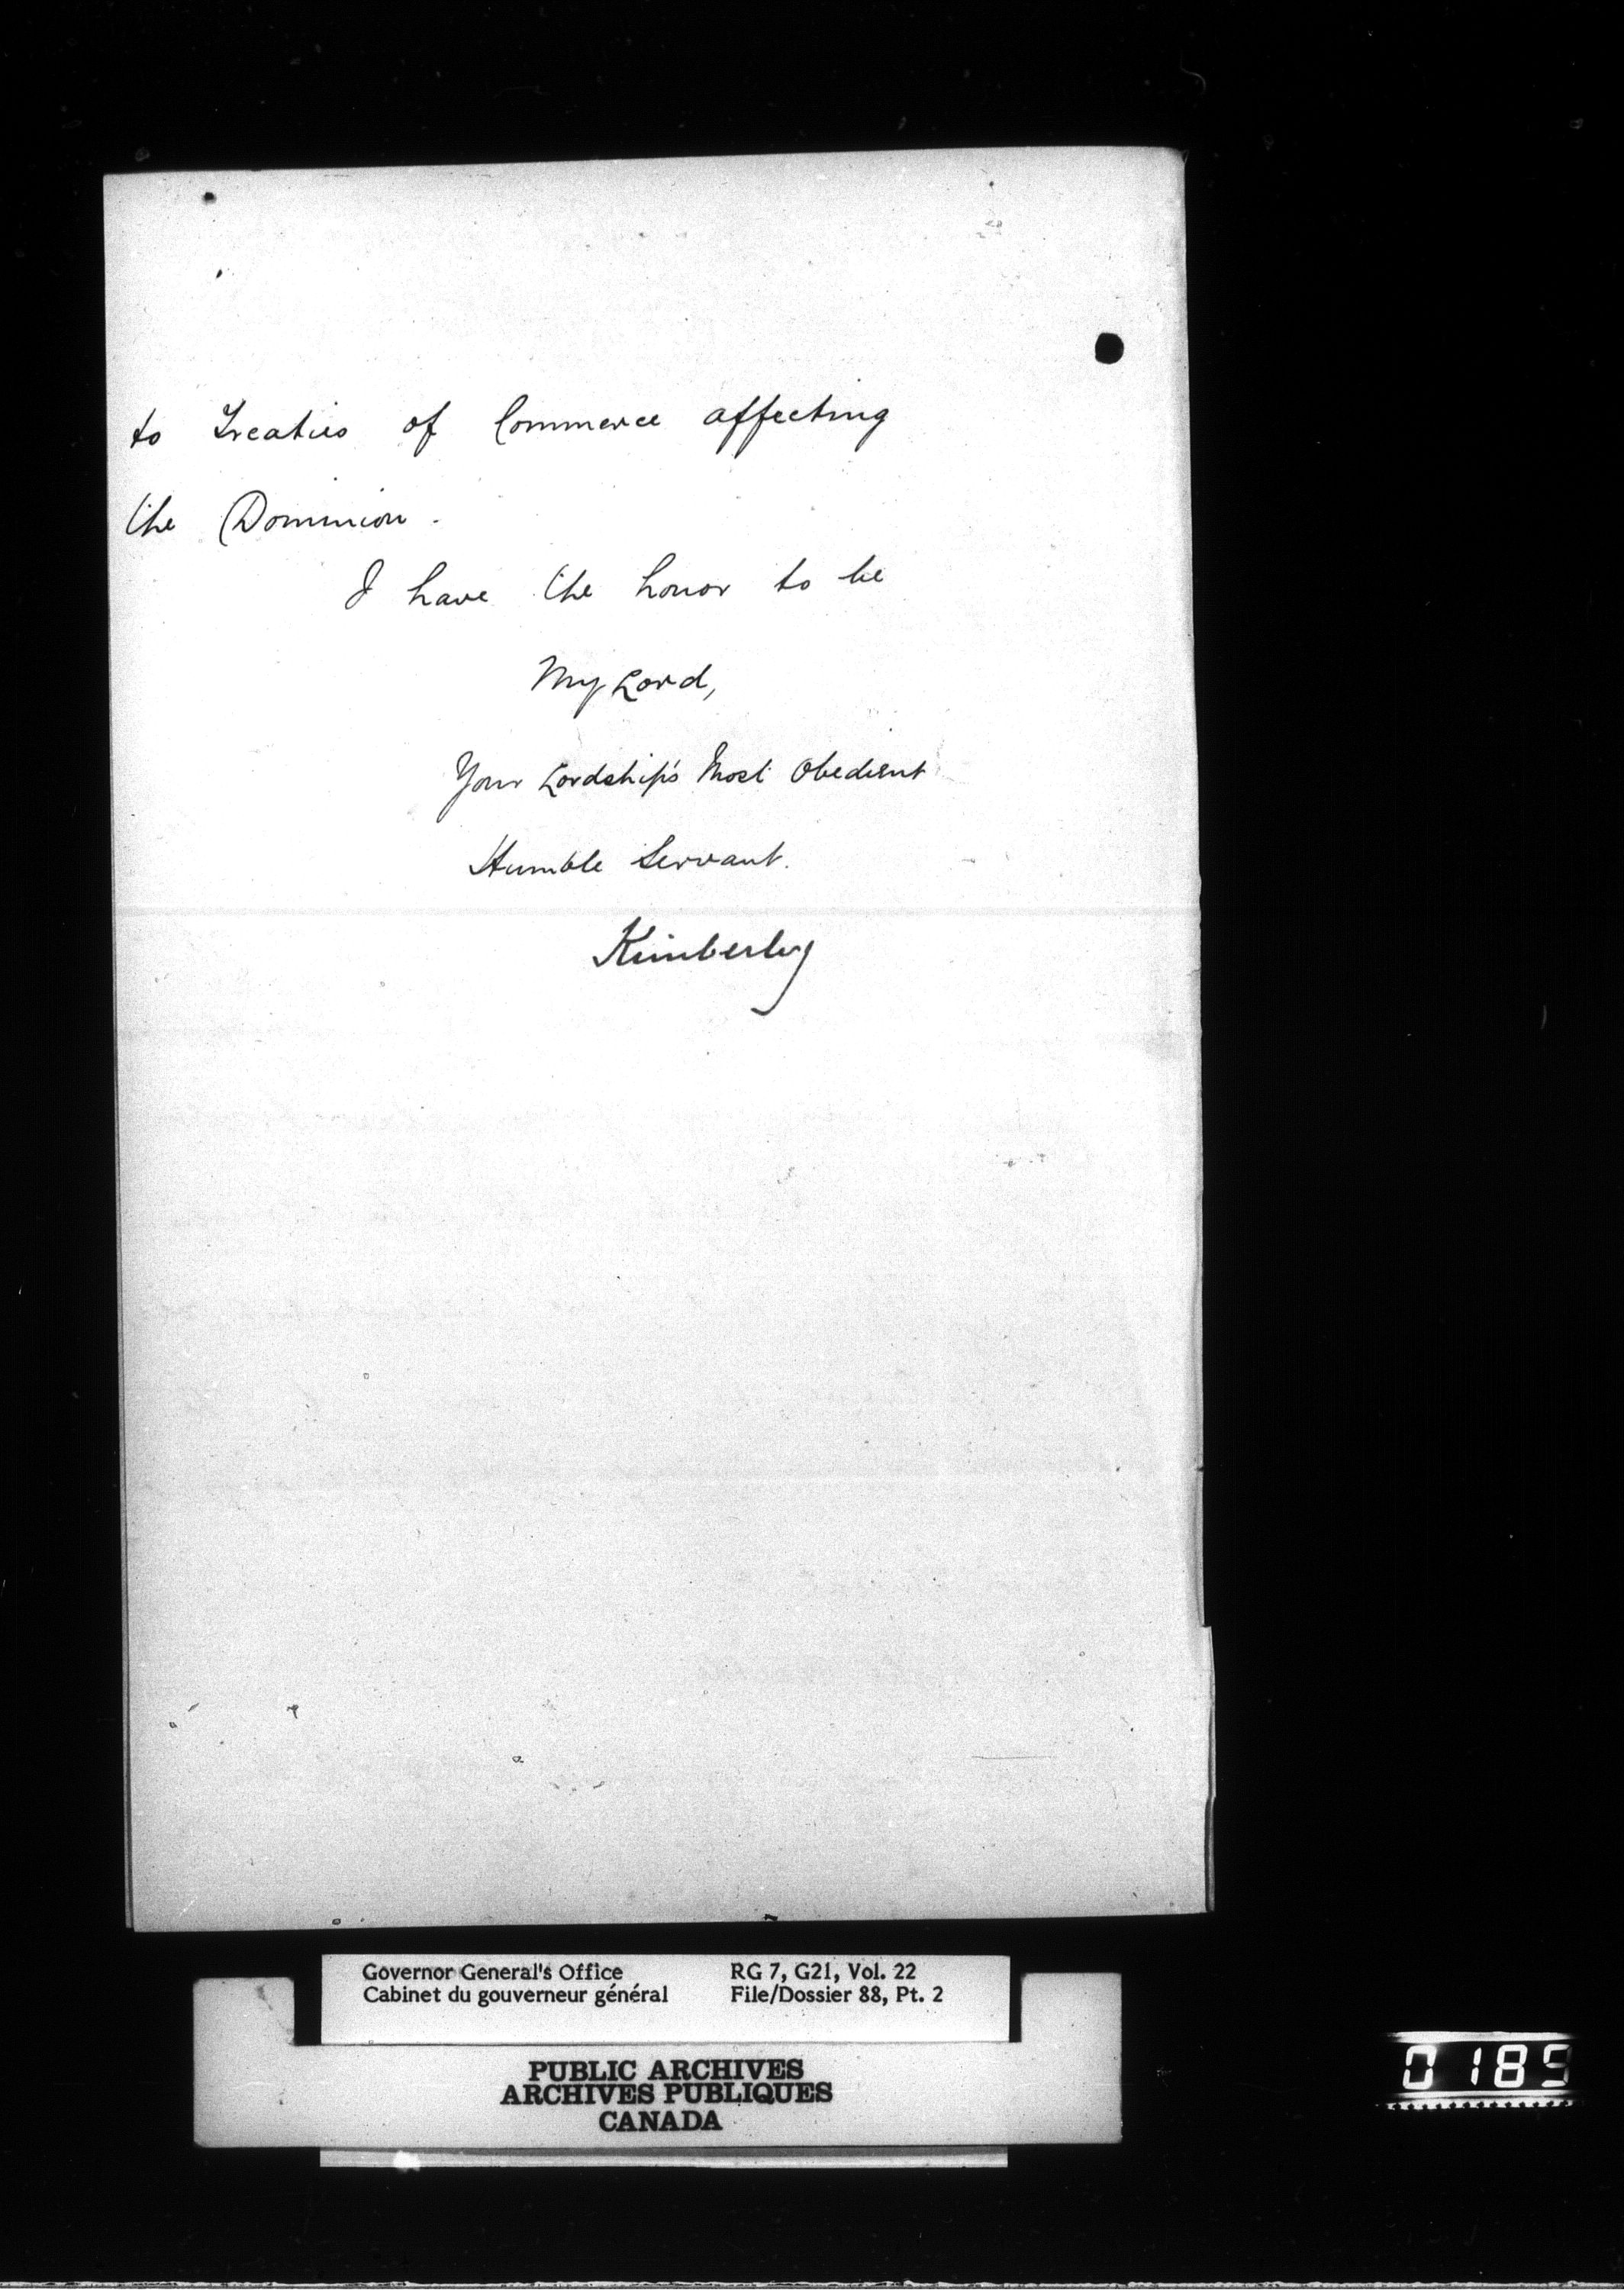 to Treaties of Commerce affecting
the Dominion.
I have the honor to be
My Lord,
Your Lordship's Most Obedient
Humble Servant.
Kimberley
Governor General's Office RG 7, G21, Vol. 22
Cabinet du gouverneur général File/Dossier 88, Pt. 2
PUBLIC ARCHIVES
ARCHIVES PUBLIQUES
CANADA
0185